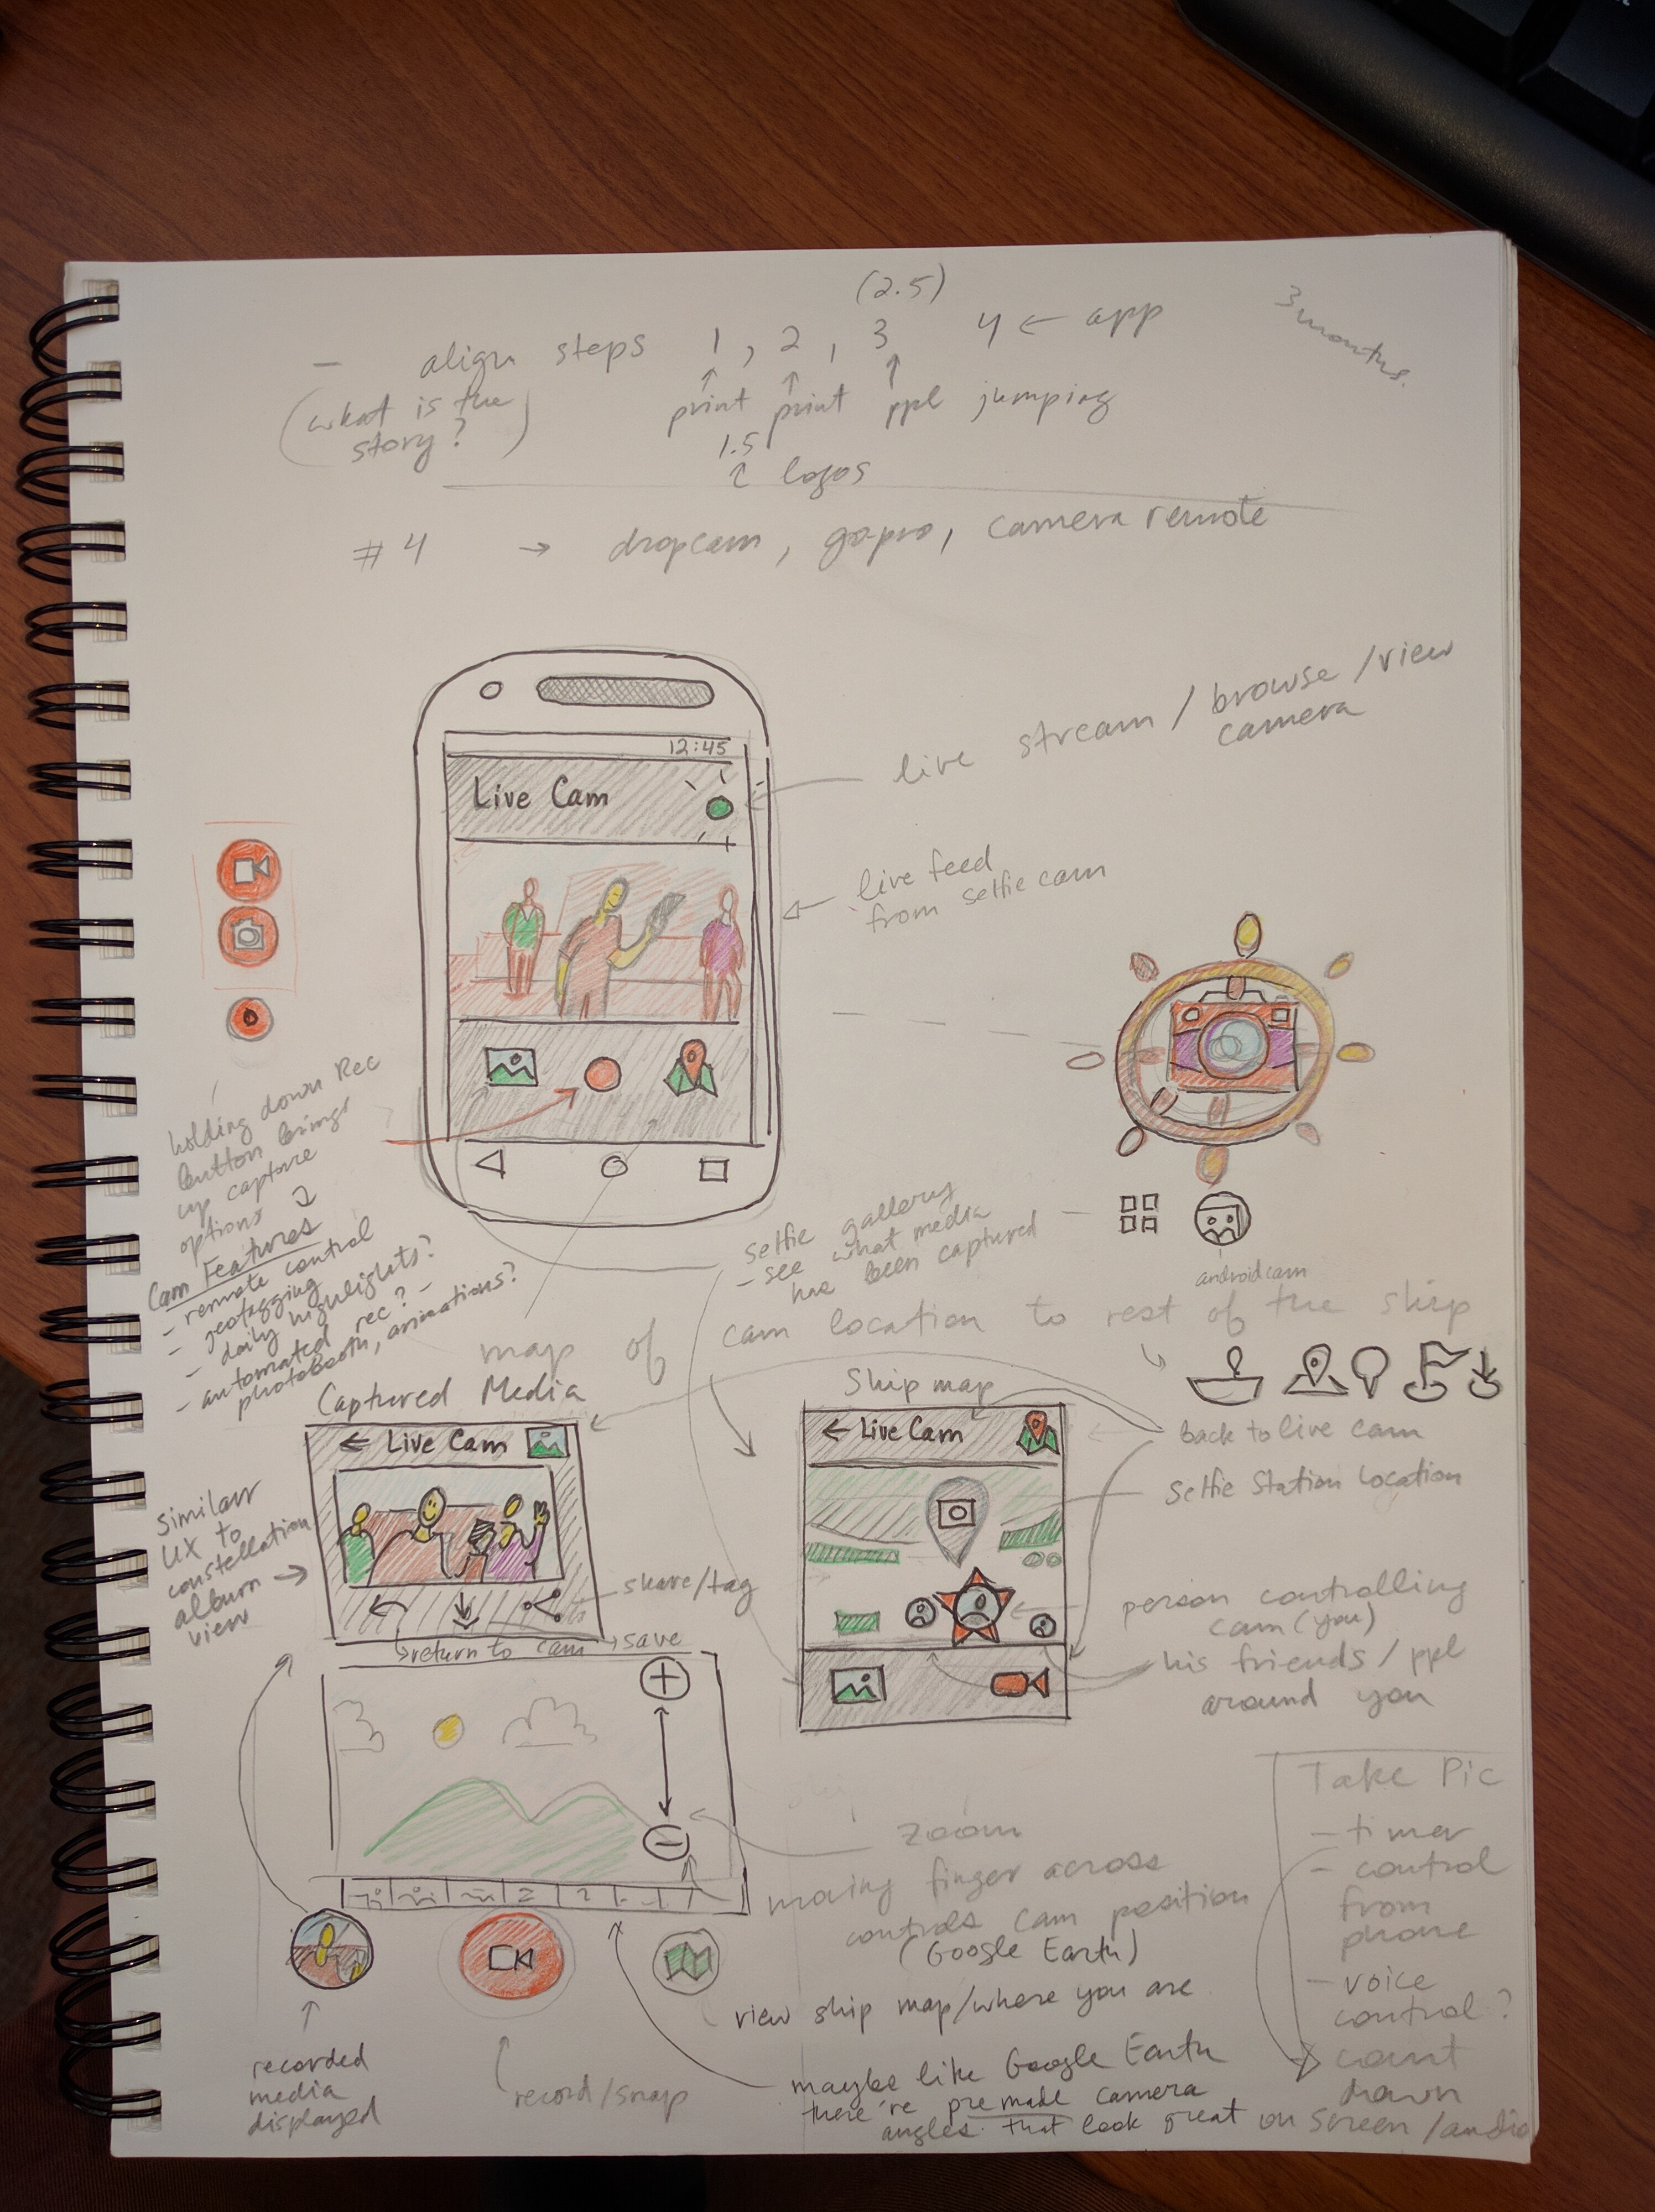 (2.5)
- align steps 1, 2, 3 4 ← app
3 months.
(what is the
story?)
print print ppl jumping
1.5
2 logos
#4 → dropcam, gopro, camera remote
12:45
Live Cam
live stream / browse / view
camera
live feed
from selfie cam
holding down Rec
button brings
up capture
options
Cam Features
- remote control
- geotagging
- daily highlights?
- automated rec? -
photobooth, animations?
selfie gallery
- see what media
has been captured
androidcam
map of cam location to rest of the ship
Captured Media
← Live Cam
similar
UX to
constellation
album →
view
share/tag
return to cam
save
Ship map
← Live Cam
back to live cam
Selfie Station Location
person controlling
cam (you)
his friends / ppl
around you
+
-
Zoom
moving finger across
controls cam position
(Google Earth)
view ship map/where you are
recorded
media
displayed
record/snap
maybe like Google Earth
there're premade camera
angles that look great
Take Pic
- timer
- control
from
phone
- voice
control?
count
down
on screen/audio